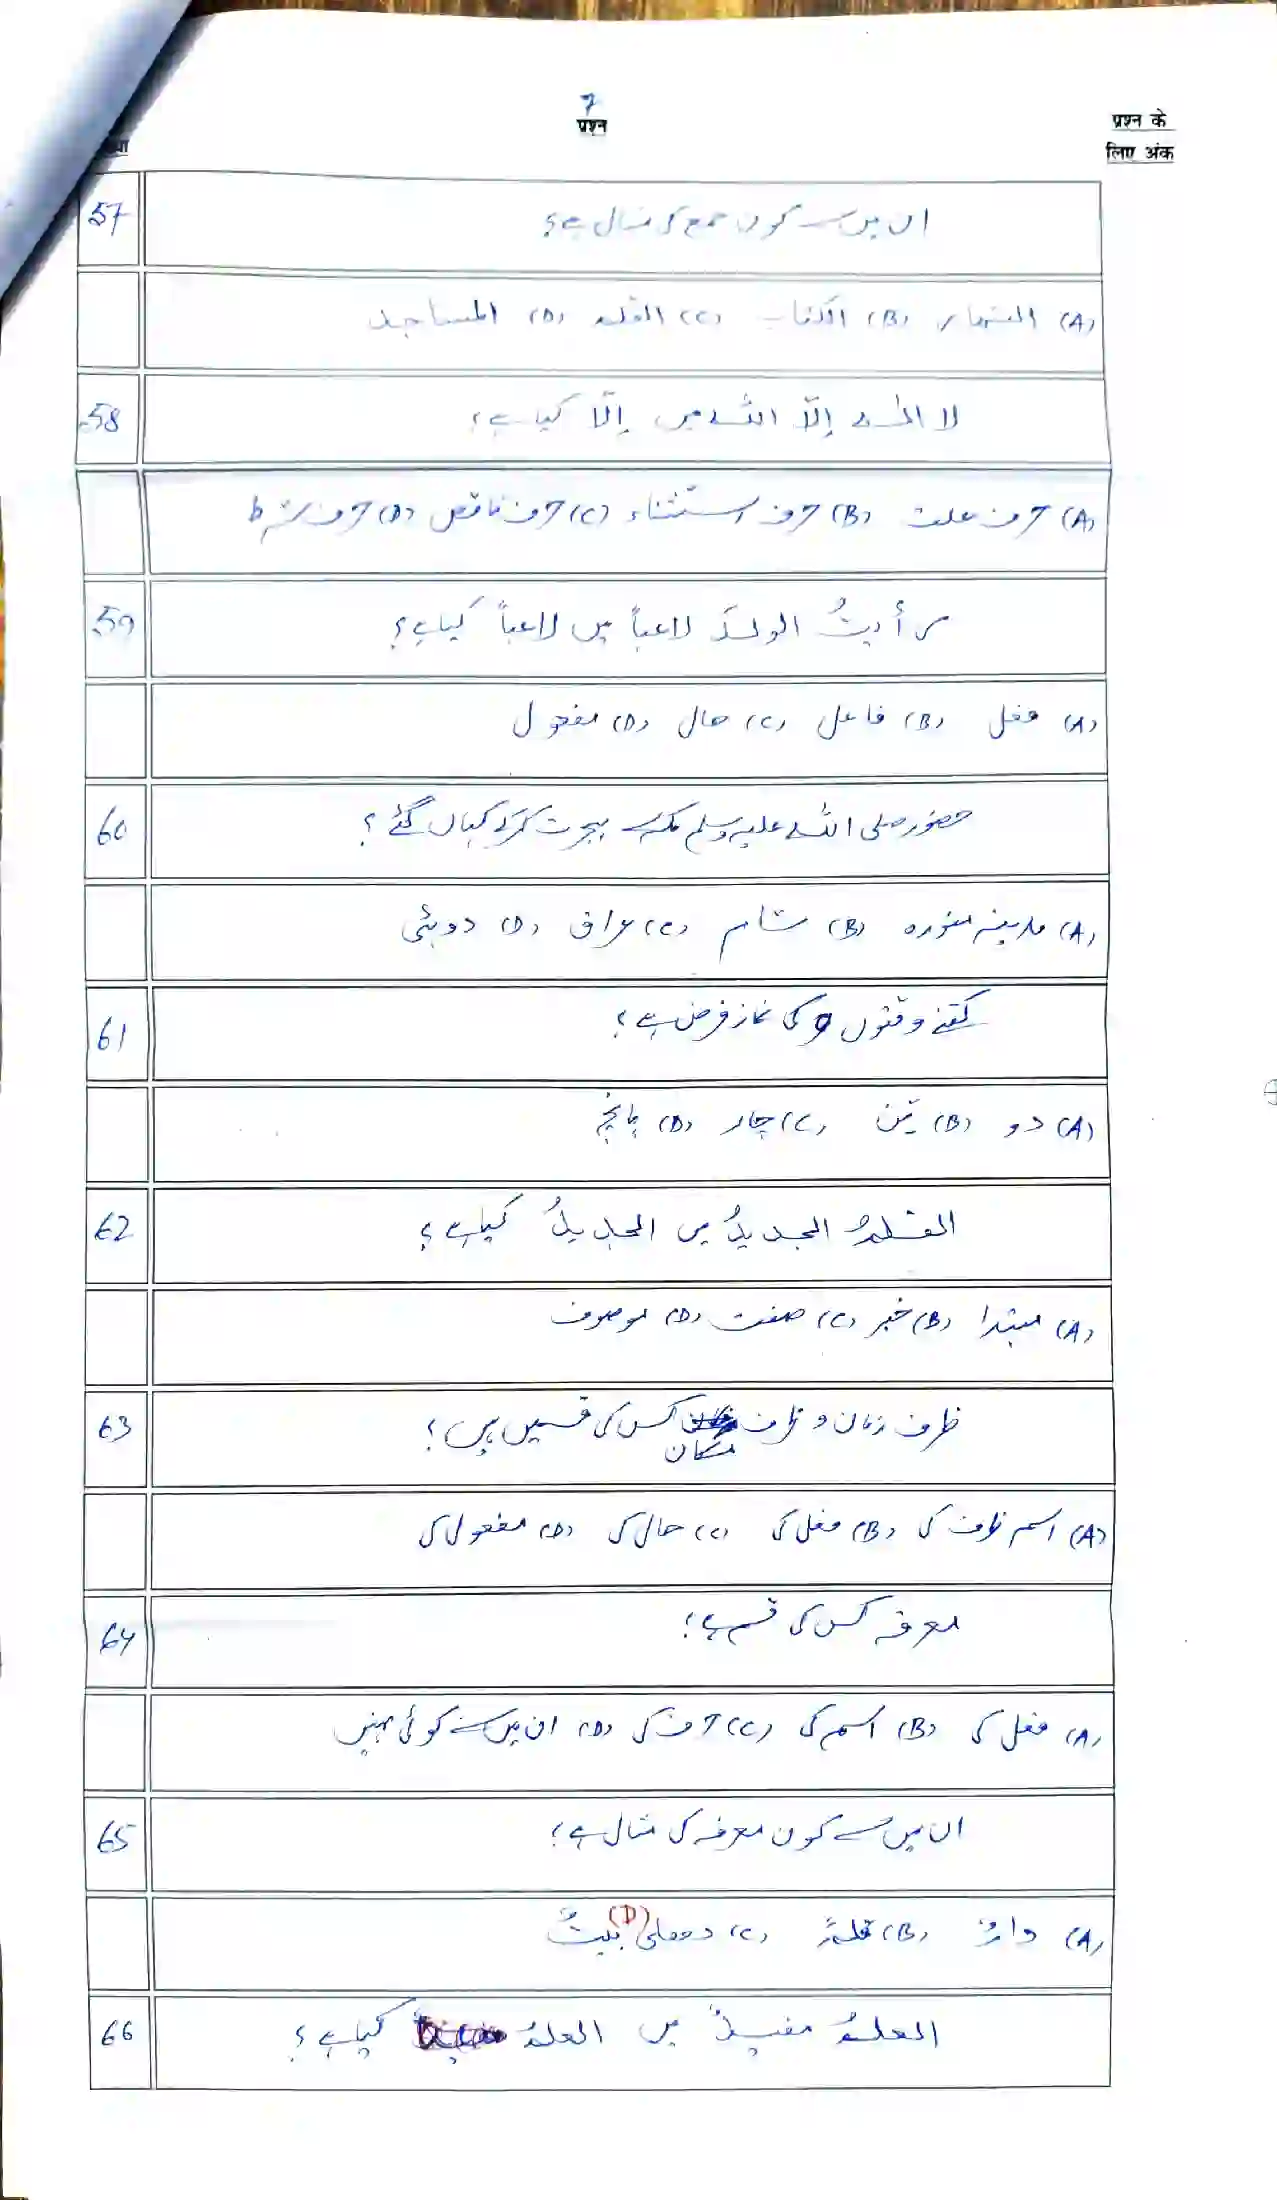 7
प्रश्न
प्रश्न के
लिए अंक
57 ان میں سے کون جمع کی مثال ہے؟
(A) النهار (B) الكتاب (C) القلم (D) المساجد
58 لا اله إلّا الله میں إلّا کیا ہے؟
(A) حرف علت (B) حرف استثناء (C) حرف ناقص (D) حرف شرط
59 رأيتُ الولدَ لاعباً میں لاعباً کیا ہے؟
(A) فعل (B) فاعل (C) حال (D) مفعول
60 حضور صلی اللہ علیہ وسلم مکہ سے ہجرت کرکے کہاں گئے؟
(A) مدینہ منورہ (B) شام (C) عراق (D) دوبئی
61 کتنے وقتوں کی نماز فرض ہے؟
(A) دو (B) تین (C) چار (D) پانچ
62 القلمُ الجديدُ میں الجديدُ کیا ہے؟
(A) مبتدا (B) خبر (C) صفت (D) موصوف
63 ظرف زمان و ظرف مکان کس کی قسمیں ہیں؟
(A) اسم ظرف کی (B) فعل کی (C) حال کی (D) مفعول کی
64 معرفہ کس کی قسم ہے؟
(A) فعل کی (B) اسم کی (C) حرف کی (D) ان میں سے کوئی نہیں
65 ان میں سے کون معرفہ کی مثال ہے؟
(A) دارٌ (B) قلمٌ (C) دهلی (D) بيتٌ
66 العلمُ مفيدٌ میں العلمُ کیا ہے؟